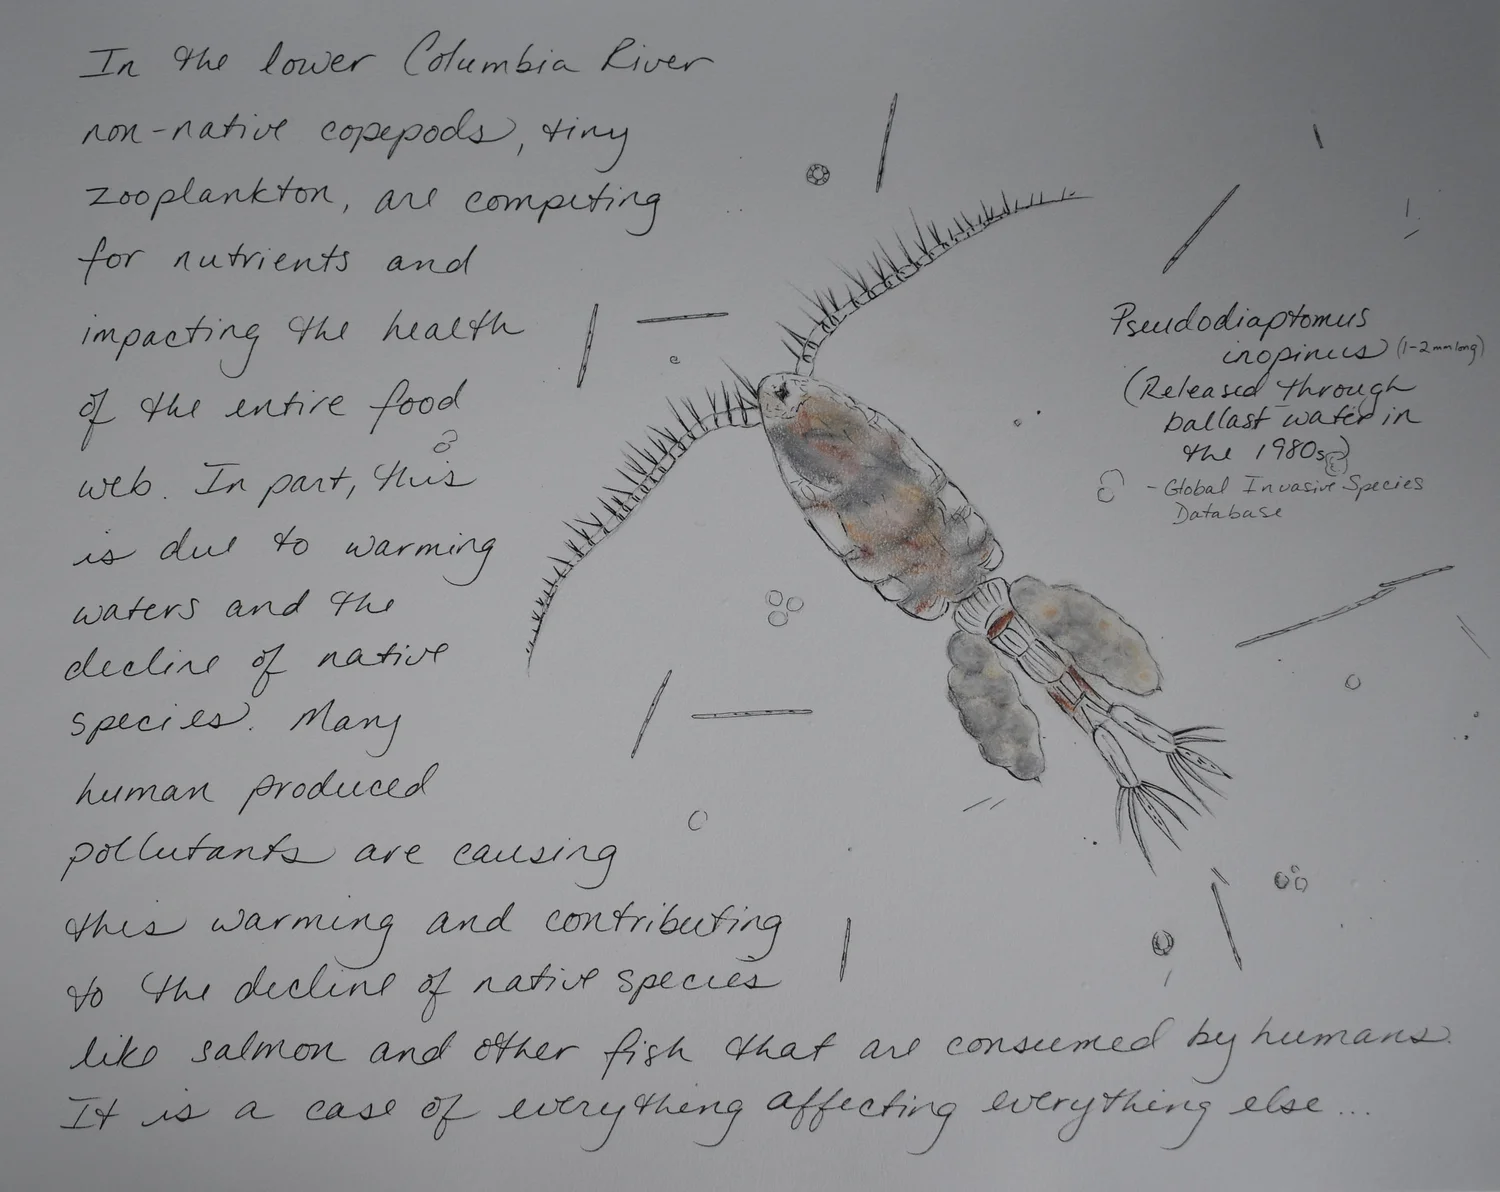 In the lower Columbia River
non-native copepods, tiny
zooplankton, are competing
for nutrients and
impacting the health
of the entire food
web. In part, this
is due to warming
waters and the
decline of native
species. Many
human produced
pollutants are causing
this warming and contributing
to the decline of native species
like salmon and other fish that are consumed by humans.
It is a case of everything affecting everything else...
Pseudodiaptomus
inopinus (1-2mm long)
(Released through
ballast water in
the 1980s)
- Global Invasive Species
Database